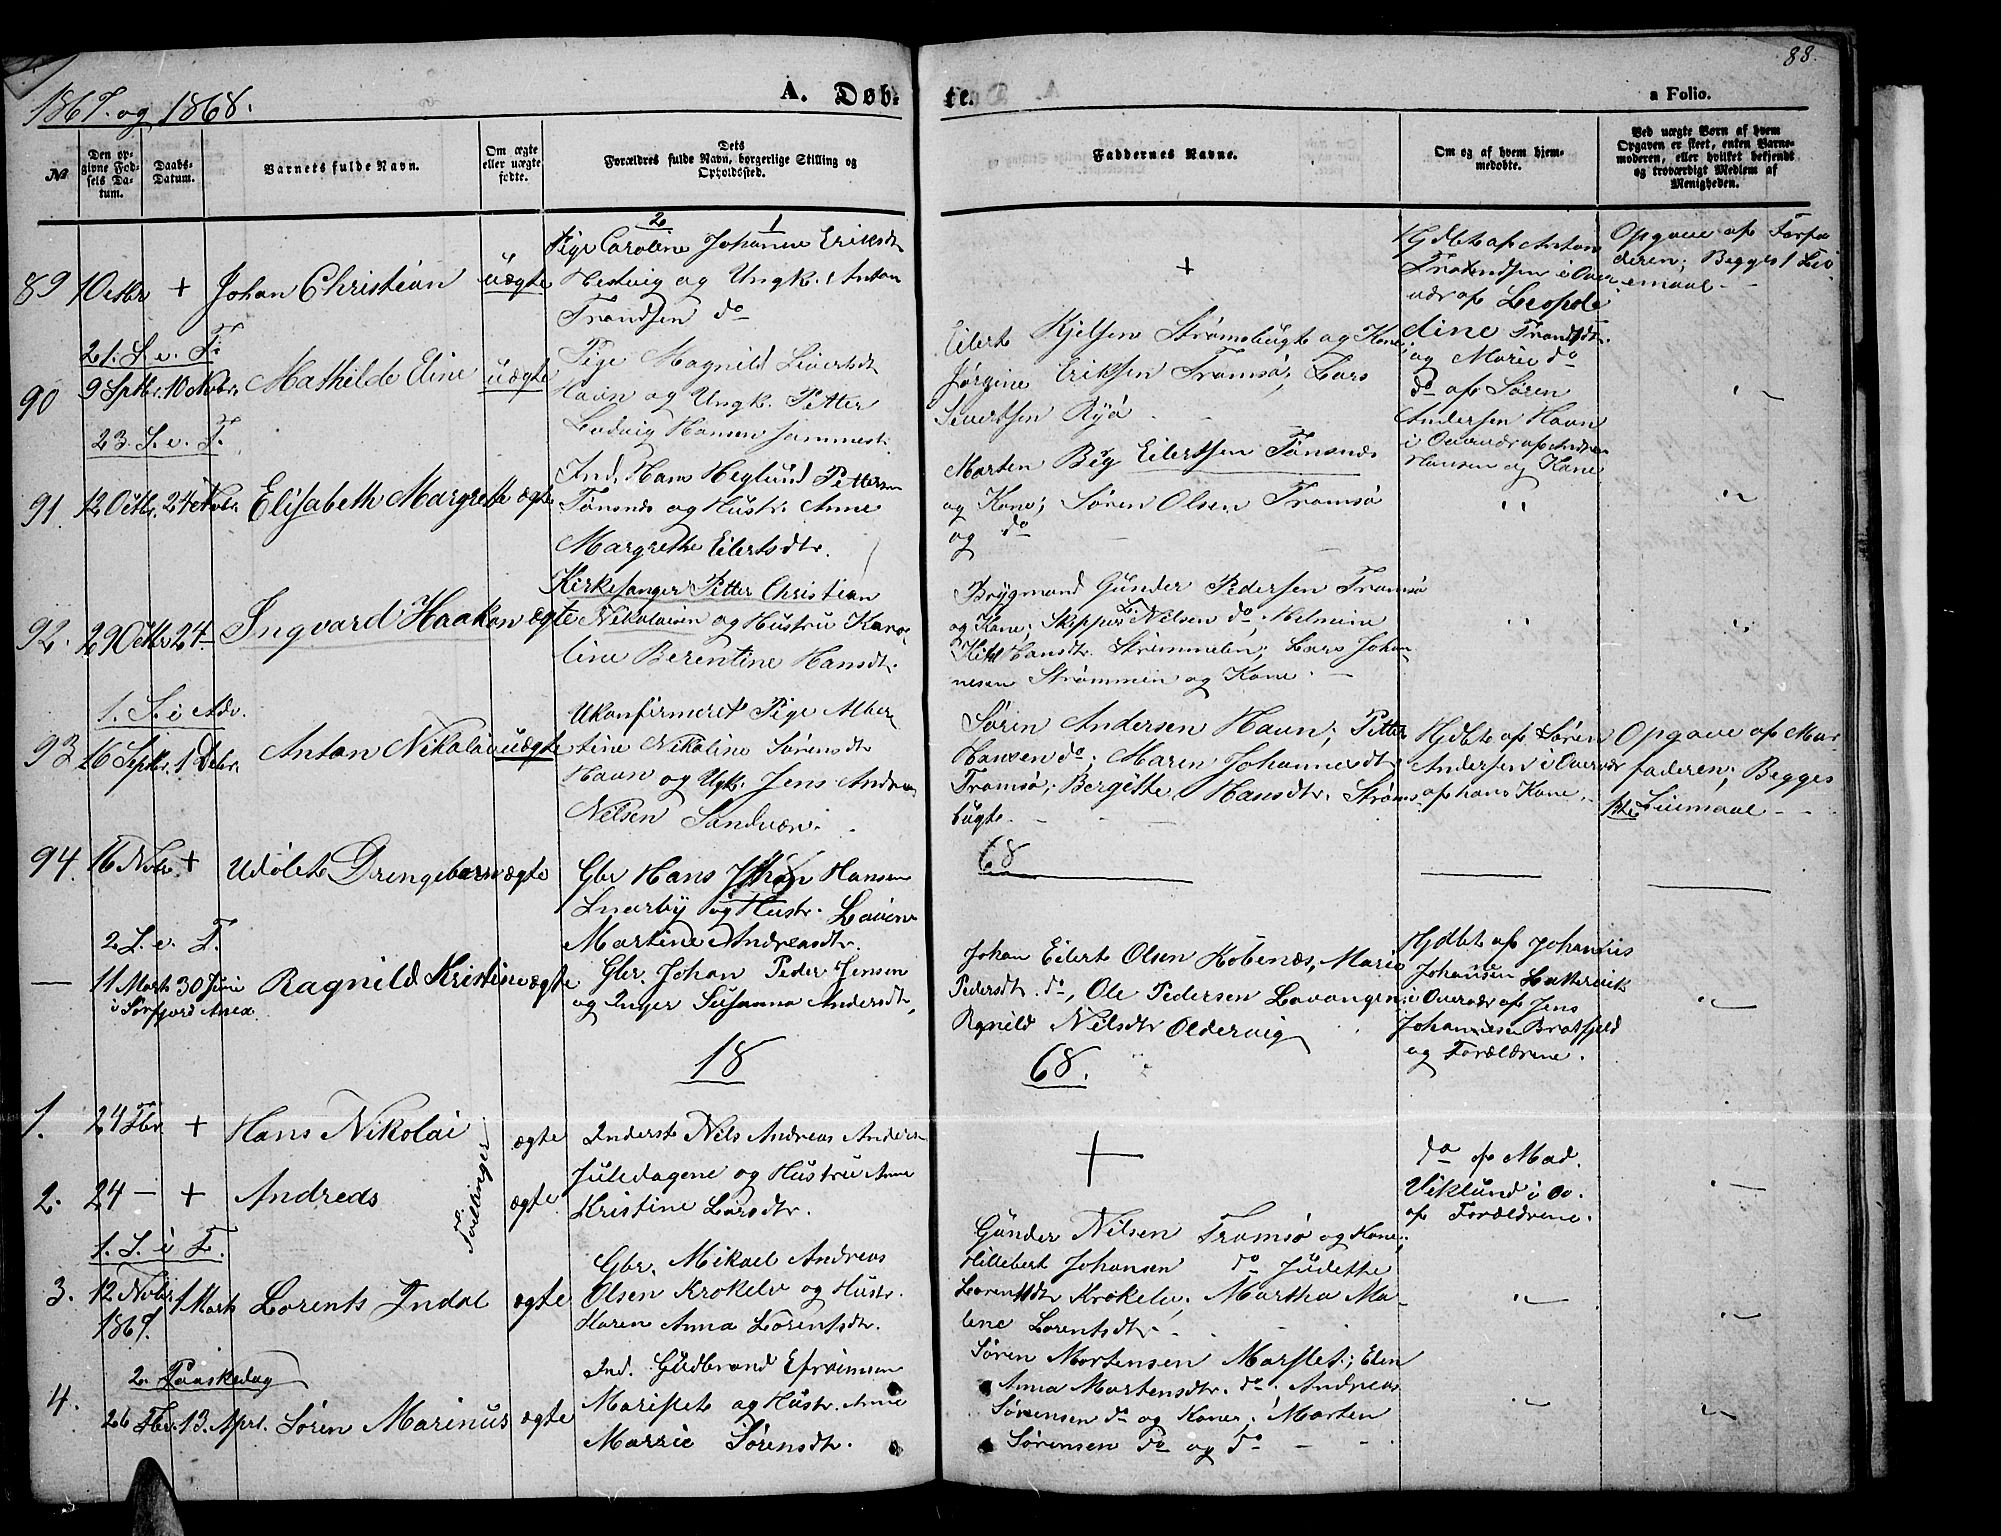 1867. og 1868.
A. Døb-
te.
a Folio.
88.
No
Den op-
givne Fød-
sels Da-
tum.
Daabs-
Datum.
Barnets fulde Navn.
Om ægte
eller uægte
fødte.
Dets
Forældres fulde Navn, borgerlige Stilling og
Opholdssted.
Faddernes Navne.
Om og af hvem hjem-
medøbte.
Ved uægte Børn af hvem
Opgaven er skeet, enten Barne-
moderen, eller hvilket bekjendt
og troværdigt Medlem af
Menigheden.
89 1 Octbr + Johan Christian uægte
2 1
Pige Caroline Johanne Eriksdt
Hervig og Ungk. Anton
Trondsen do
+
Hjdbt af Anton
Trondsen i Over
vær af Leopol
dine Trondsdt.
og Marie do
Opgave af Forfa
deren; Begges 1 Lei
ermaal -
21. S. e. T.
90 9 Sptbr. 10 Novbr. Mathilde Eline uægte
Pige Magnild Sivertsdt
Havn og Ungk. Petter
Ludvig Hansen sammest.
Eilert Kjelsen Strømsbugt og Kone;
Jørgine Eriksen Tromsø; Lars
Sivertsen Ryø - -
do af Søren
Andersen Havn
i Overvær af Andrea
Hansen og Kone
23. S. e. T.
91. 12 Octbr. 24 Novbr. Elisabeth Margrethe ægte
Ind. Hans Heglund Pettersen
Tønsnæs og Hustr. Anne
Margrethe Eilertsdtr.
Morten Big Eilertsen Tønsnæs
og Kone; Søren Olsen Tromsø
og do - -
92. 29 Octbr 24 - Ingvard Haakon ægte
Kirkesanger Petter Christian
Nikolaisen og Hustru Karo-
line Berentine Hansdt.
Brygmand Gunder Pedersen Tromsø
og Kone; Skipper L. Nilsen do; Helmine
Kild Hansdtr. Strømmelen; Lars Johan
nesen Strømmen og Kone. -
1. S. i Adv.
93 16 Septbr. 1 Debr. Anton Nikolai uægte
Ukonfirmeret Pige Alber
tine Nikoline Sørensdt
Havn og Ugk. Jens Andrea
Nilsen Sandvær. -
Søren Andersen Havn; Petter
Hansen do; Maren Johannesdt
Tromsø; Bergitte Hansdtr. Strøms
bugt. - - -
Hjdbt af Søren
Andersen i Overvær
af hans Kone. -
Opgave af Mor
faderen; Begges
1ste Leiermaal - -
94. 16 Novbr + Udøbt Drengebarn ægte
Gbr Hans Johan Hansen
Snarby og Hustr. Lovise
Martine Andreasdtr.
68
2 S. e. T.
- 11 Marts 30 Juni Ragnild Kristine ægte
i Sørfjord Anex.
Gbr. Johan Peder Jensen
og Inger Susanna Andersdt,
Johan Eilert Olsen Kobbenæs, Marie
Pedersdt. do, Ole Pedersen Lavangen;
Rgnild Nilsdtr Oldervig
Hjdbt af Johannes
Johansen Lattervik
i Overvær af Jens
Johannesen Bratfjeld
og Forældrene.
18
68.
1. 24 Fbr. + Hans Nikolai ægte
Tvillinger
Inderst Nils Andreas Anders-
Juledagene og Hustru Anne
Kristine Larsdtr.
+
do af Mad.
Viklund i Ov.
af Forældrene.
2. 24 - + Andreas ægte
1. S. i F.
3. 12 Novbr 1 Marts Lorents Indal ægte
1867.
Gbr. Mikael Andreas
Olsen Krokelv og Hustr.
Karen Anna Lorentsdtr.
Gunder Nilsen Tromsø og Kone;
Hillebert Johansen do Judette
Lorentsdtr Krokelv; Martha Ma-
lene Lorentsdtr. - -
2. Paaskedag
4. 26 Fbr. 13. Aprl. Søren Marinus ægte
Ind. Gudbrand Efraimsen
Marislet og Hustr. Anne
Marrie Sørensdtr.
Søren Mortensen Marslet; Elen
Anna Mortensdtr. do; Andreas
Sørensen do og Kone; Morten
Sørensen do og do - -